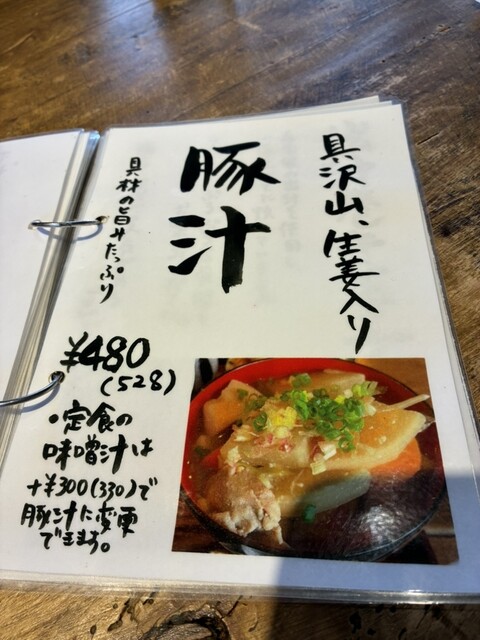 具沢山、生姜入り
豚汁
具材の旨味たっぷり
¥480
(528)
・定食の
味噌汁は
+¥300(330)で
豚汁に変更
できます。